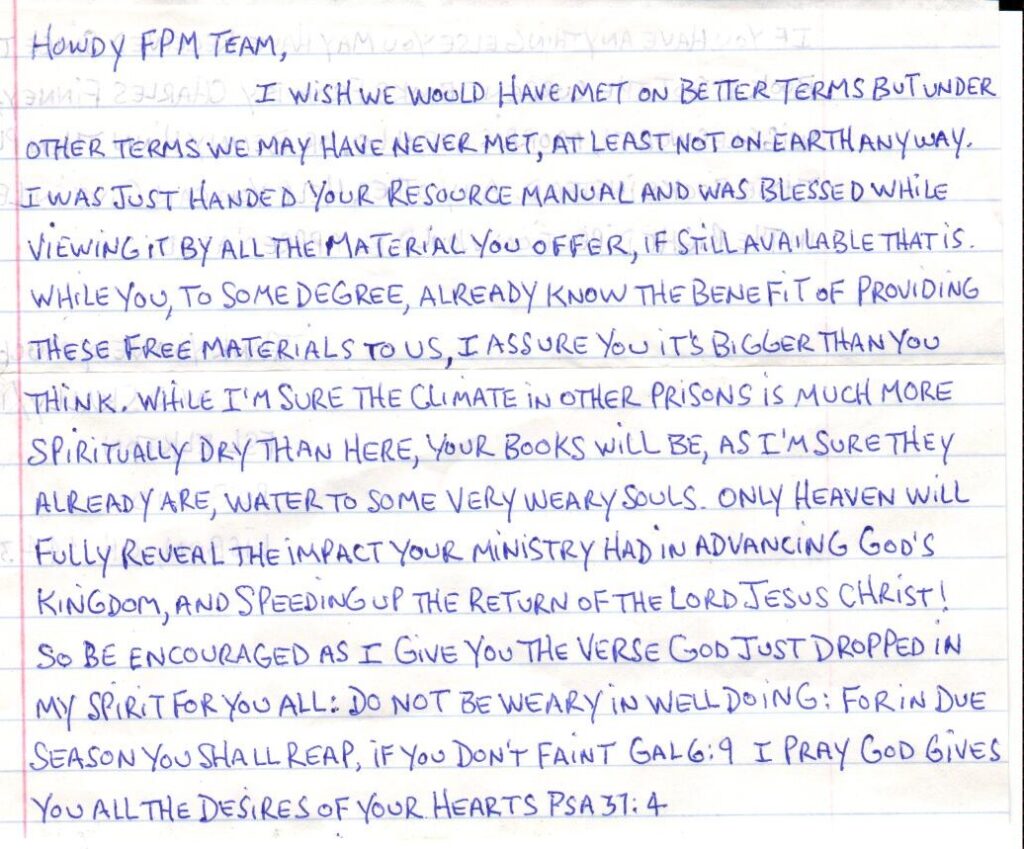 Howdy FPM Team,
I wish we would have met on better terms but under
other terms we may have never met, at least not on earth anyway.
I was just handed your resource manual and was blessed while
viewing it by all the material you offer, if still available that is.
While you, to some degree, already know the benefit of providing
these free materials to us, I assure you it's bigger than you
think. While I'm sure the climate in other prisons is much more
spiritually dry than here, your books will be, as I'm sure they
already are, water to some very weary souls. Only Heaven will
fully reveal the impact your ministry had in advancing God's
Kingdom, and speeding up the return of the Lord Jesus Christ!
So be encouraged as I give you the verse God just dropped in
my spirit for you all: Do not be weary in well doing: for in due
season you shall reap, if you don't faint Gal 6:9 I pray God gives
you all the desires of your hearts Psa 37:4